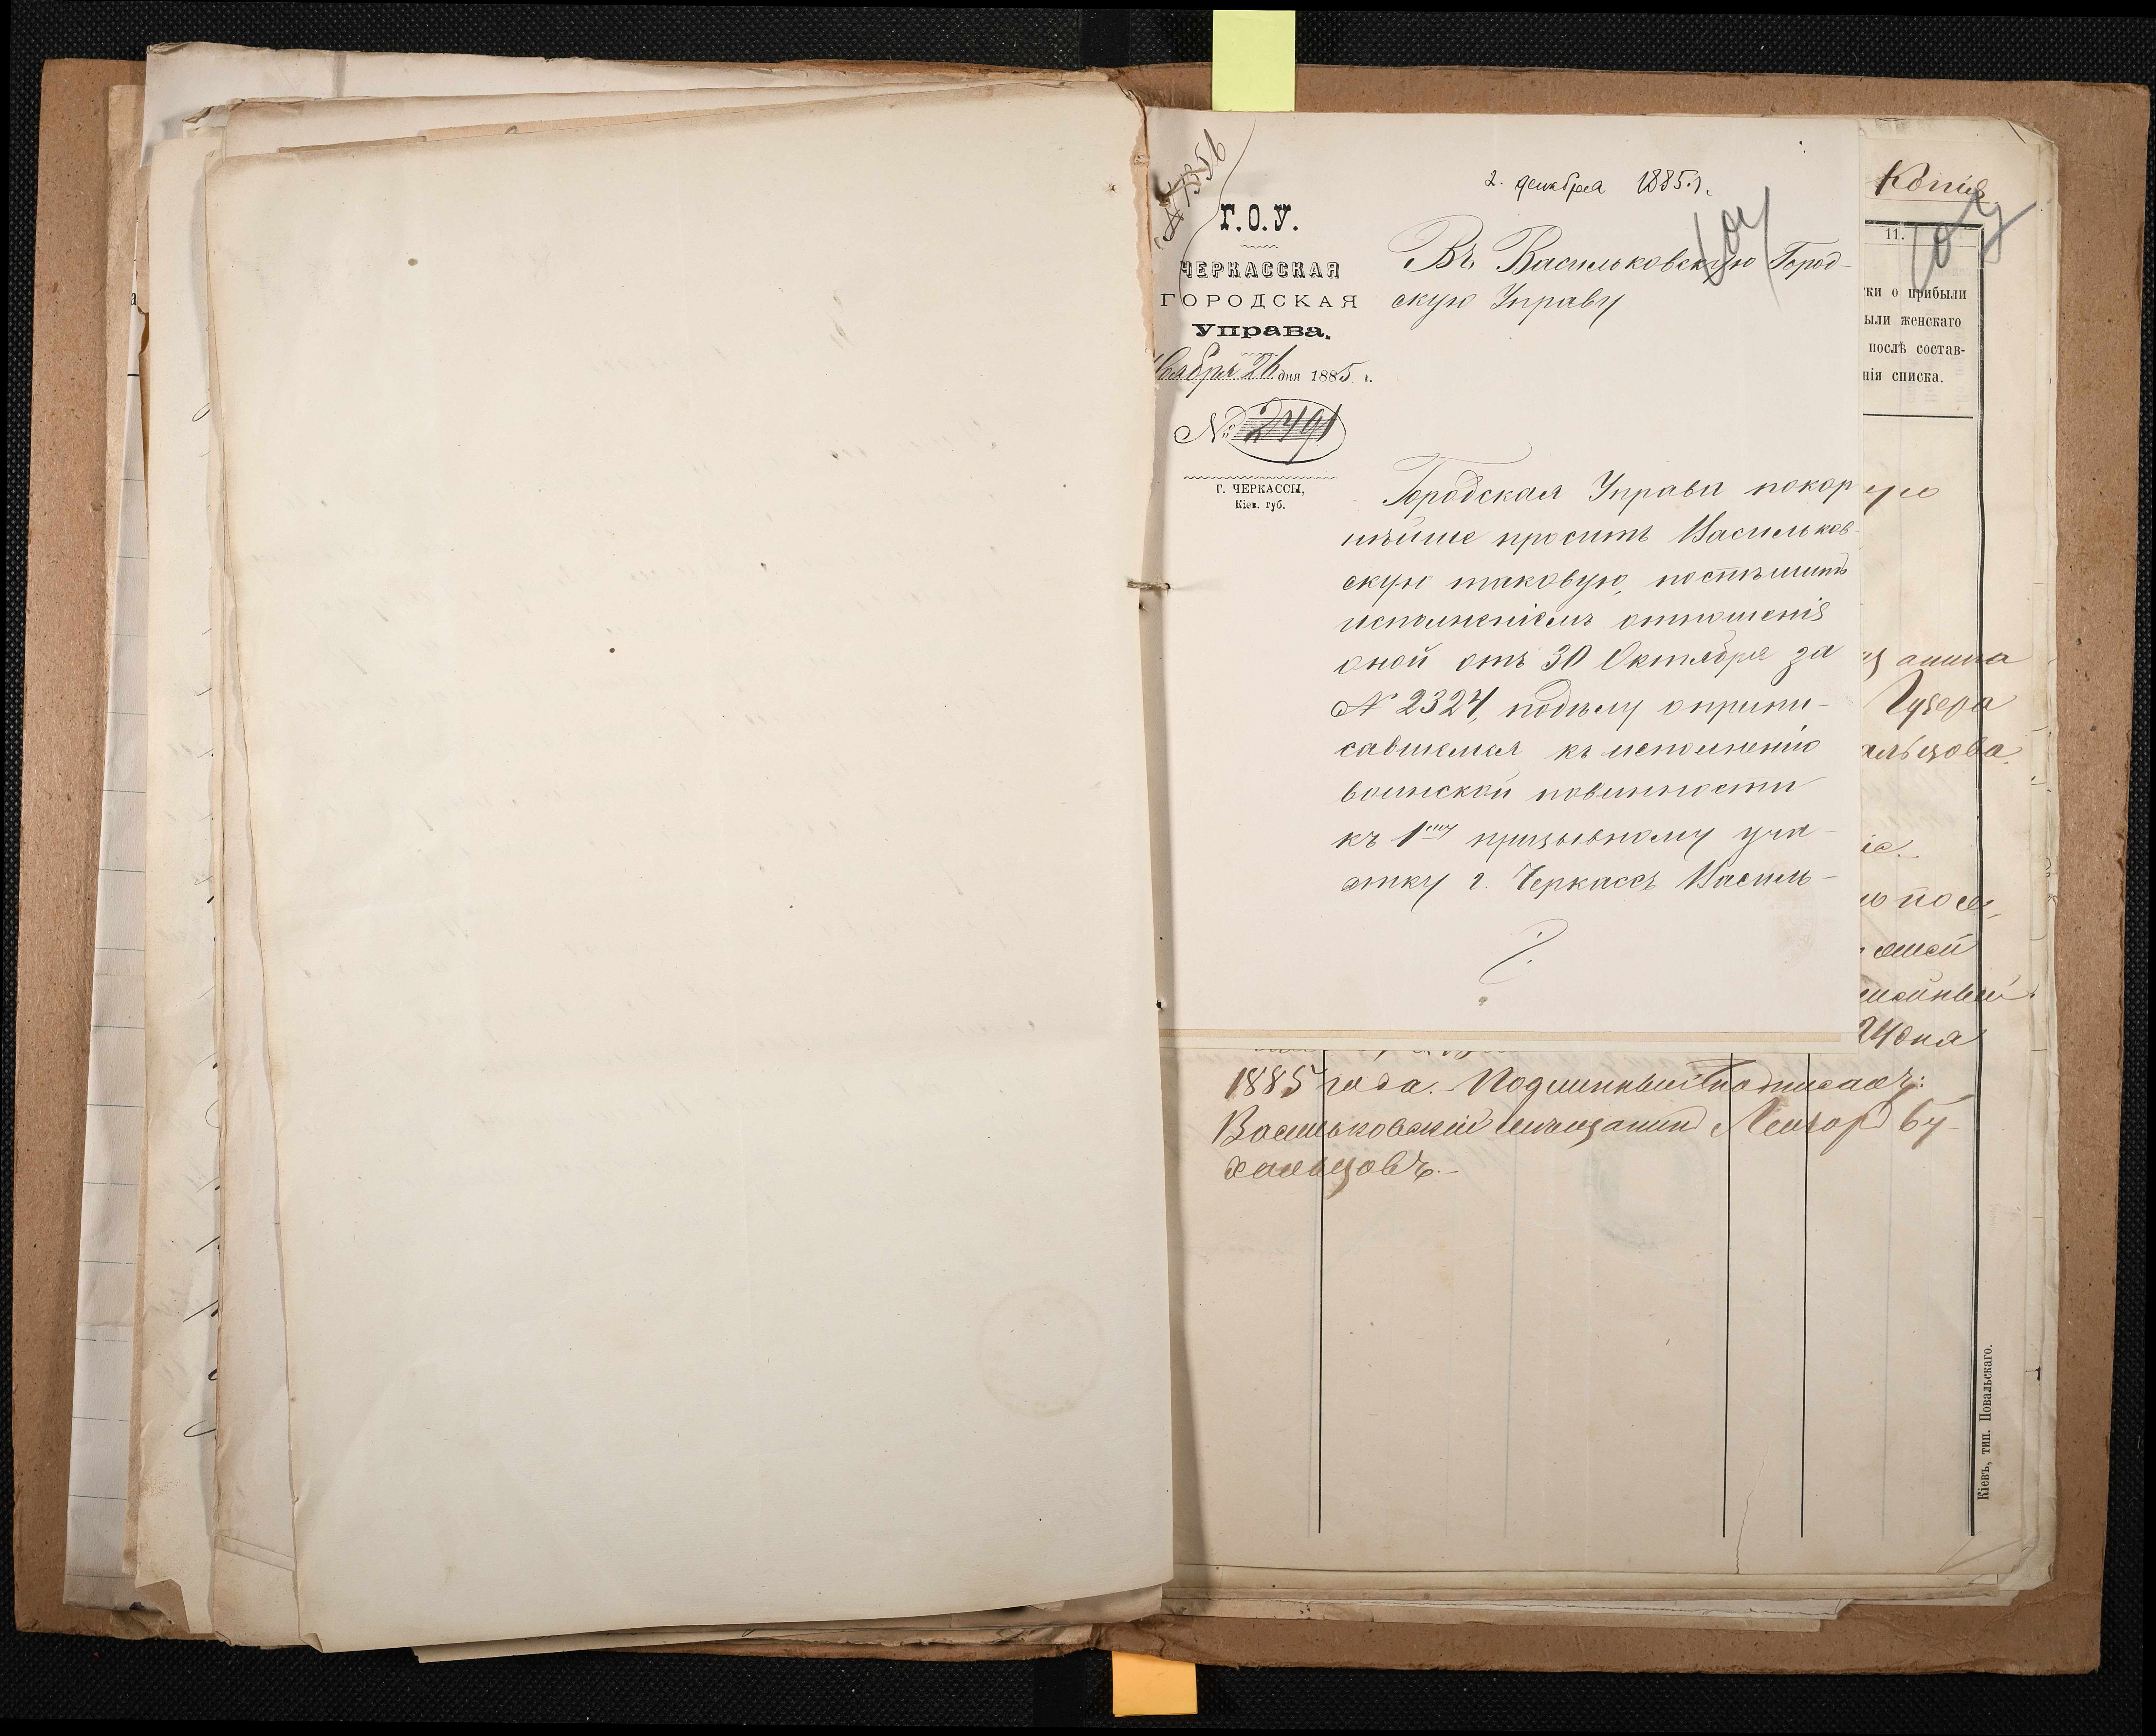 № 13556
2. декабря 1885 г.
Г.О.У.
ЧЕРКАССКАЯ
ГОРОДСКАЯ
Управа.
Ноября 26 дня 1885 г.
№ 2491
Г. ЧЕРКАССЫ,
Кіев. губ.
Въ Васильковскую Город-
скую Управу
Городская Управа покор
нѣйше проситъ Васильков-
скую таковую, поспѣшить
исполненіемъ отношенія
оной отъ 30 Октября за
№ 2324, по дѣлу о припи-
савшемся къ исполненію
воинской повинности
къ 1му призывному уча-
стку г. Черкассъ Василь-
Копія
11.
ки о прибыли
ыли женскаго
послѣ состав-
нія списка.
ую
щанина
Гузера
альцова
іе.
ю посе,
мейный
24 дня
1885 года. Подлинный подписалъ:
Васильковскій мѣщанинъ Лейзоръ Бу-
хальцовъ.
Кіевъ, тип. Повальскаго.